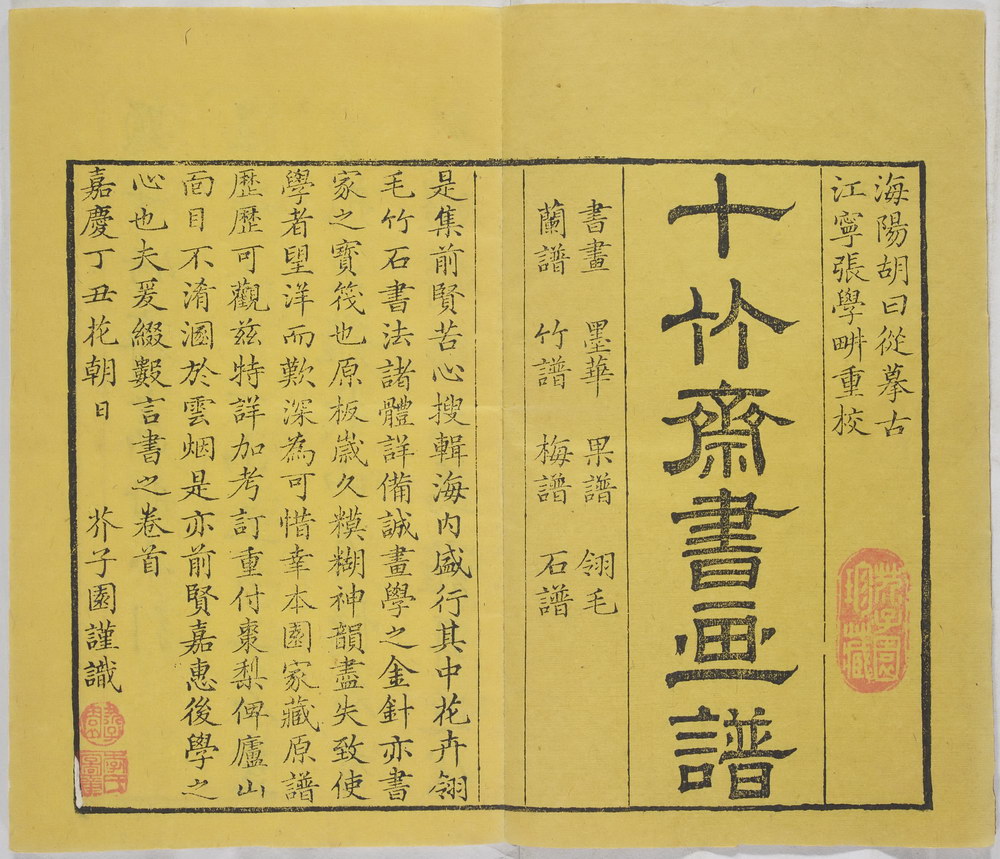 海陽胡曰從摹古
江寧張學畊重校
芥子園
珍藏
十竹齋書画譜
書畫 墨華 果譜 翎毛
蘭譜 竹譜 梅譜 石譜
是集前賢苦心搜輯海内盛行其中花卉翎
毛竹石書法諸體詳備誠畫學之金針亦書
家之寶筏也原板歲久糢糊神韻盡失致使
學者望洋而歎深為可惜幸本園家藏原譜
歷歷可觀兹特詳加考訂重付棗梨俾廬山
面目不淆溷於雲烟是亦前賢嘉惠後學之
心也夫爰綴數言書之卷首
嘉慶丁丑花朝日 芥子園謹識